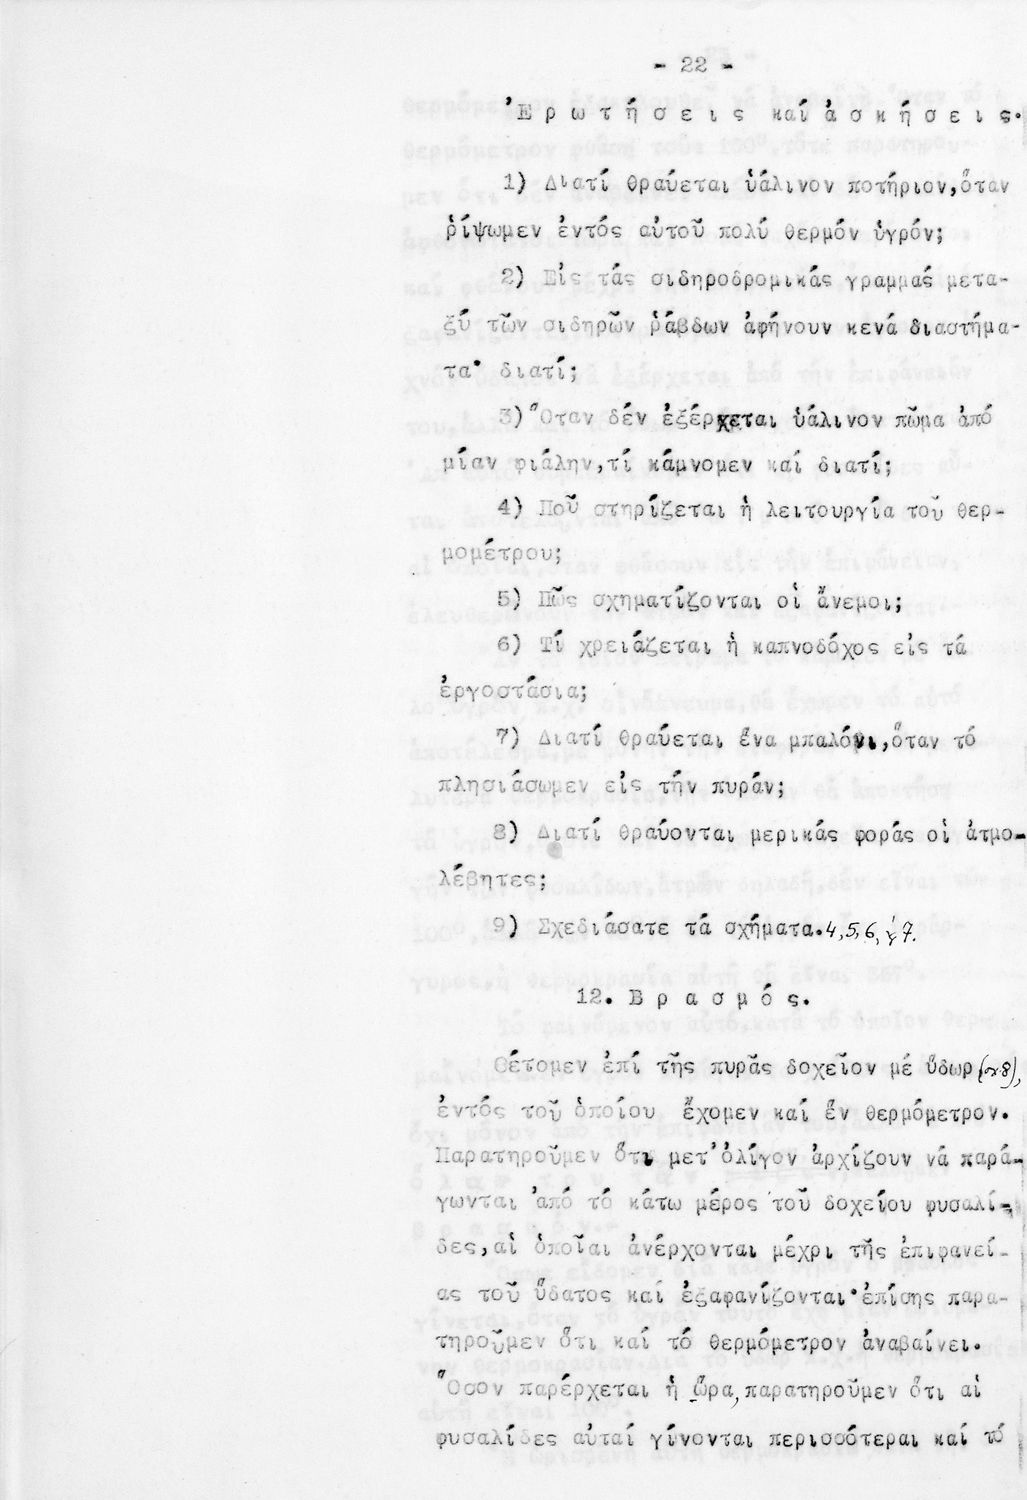 - 22 -
Ἐ ρ ω τ ή σ ε ι ς καί ἀ σ κ ή σ ε ι ς.
1) Διατί θραύεται ὑάλινον ποτήριον,ὅταν
ῥίψωμεν ἐντός αὐτοῦ πολύ θερμόν ὑγρόν;
2) Εἰς τάς σιδηροδρομικάς γραμμάς μετα-
ξύ τῶν σιδηρῶν ῥάβδων ἀφήνουν κενά διαστήμα-
τα· διατί;
3) Ὅταν δέν ἐξέρχεται ὑάλινον πῶμα ἀπό
μίαν φιάλην,τί κάμνομεν καί διατί;
4) Ποῦ στηρίζεται ἡ λειτουργία τοῦ θερ-
μομέτρου;
5) Πῶς σχηματίζονται οἱ ἄνεμοι;
6) Τί χρειάζεται ἡ καπνοδόχος εἰς τά
ἐργοστάσια;
7) Διατί θραύεται ἕνα μπαλόνι,ὅταν τό
πλησιάσωμεν εἰς τήν πυράν;
8) Διατί θραύονται μερικάς φοράς οἱ ἀτμο-
λέβητες;
9) Σχεδιάσατε τά σχήματα.4,5,6, ϗ 7.
12. Β ρ α σ μ ό ς.
Θέτομεν ἐπί τῆς πυρᾶς δοχεῖον μέ ὕδωρ
ἐντός τοῦ ὁποίου ἔχομεν καί ἕν θερμόμετρον.
Παρατηροῦμεν ὅτι μετ' ὀλίγον ἀρχίζουν νά παρά-
γωνται ἀπό τό κάτω μέρος τοῦ δοχείου φυσαλί-
δες,αἱ ὁποῖαι ἀνέρχονται μέχρι τῆς ἐπιφανεί-
ας τοῦ ὕδατος καί ἐξαφανίζονται·ἐπίσης παρα-
τηροῦμεν ὅτι καί τό θερμόμετρον ἀναβαίνει.
Ὅσον παρέρχεται ἡ ὥρα,παρατηροῦμεν ὅτι αἱ
φυσαλίδες αὐταί γίνονται περισσότεραι καί τό